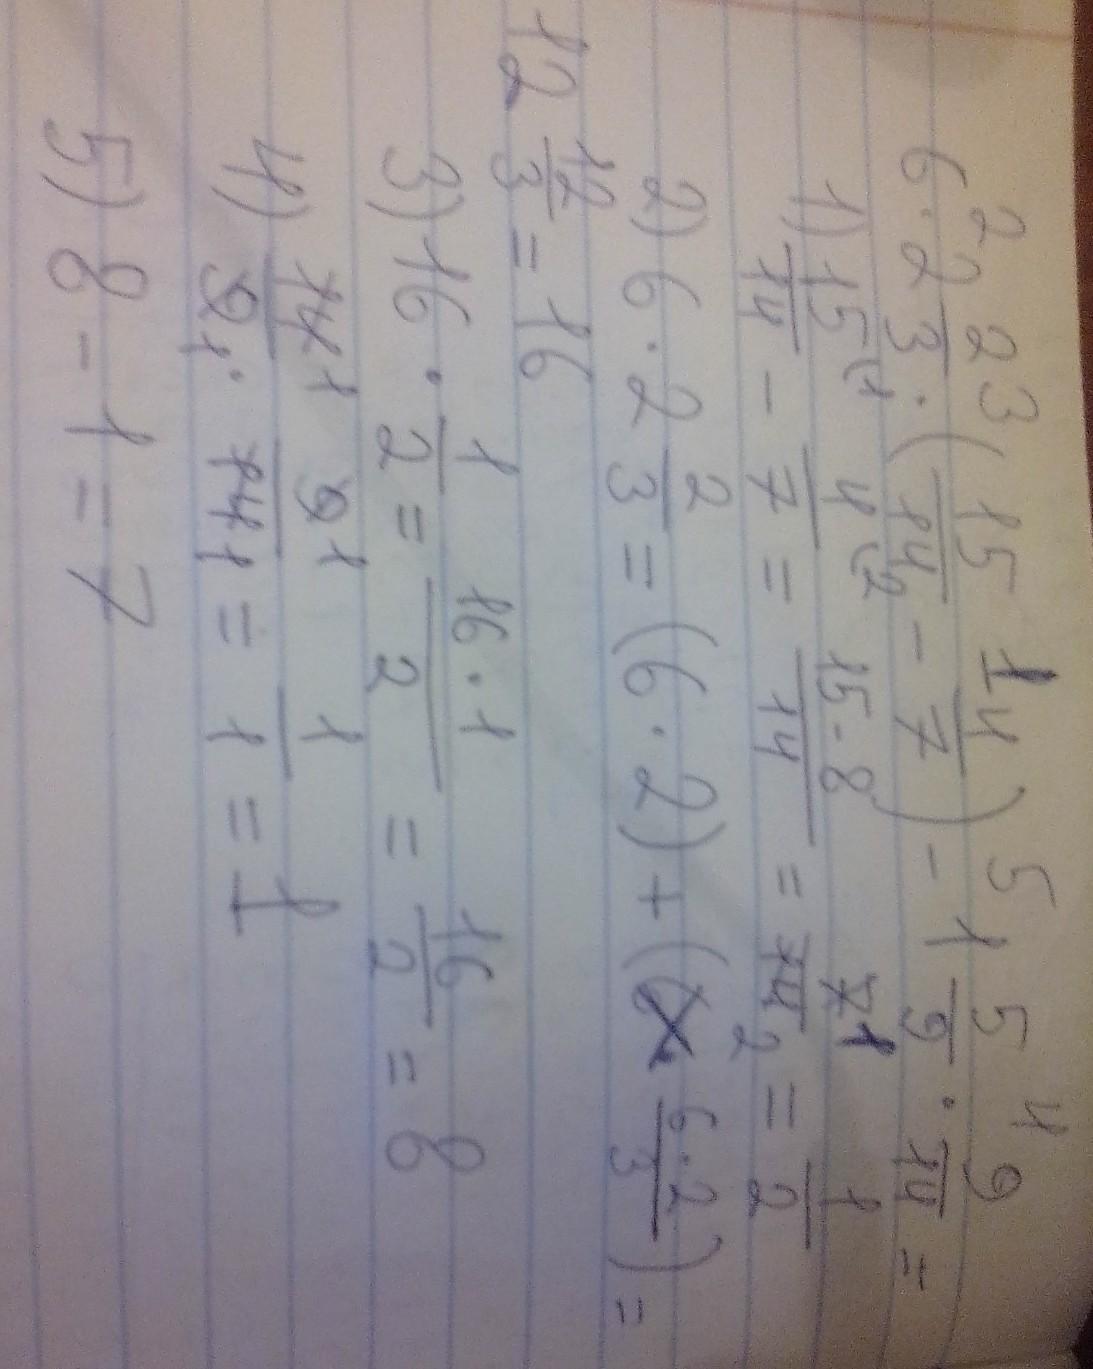 2 3 1 5 4
6 · 2 2/3 · (15/14 - 4/7) - 1 5/9 · 9/14 =
1) 15/14 - 4/7 = 15-8/14 = 7/14 = 1/2
2) 6 · 2 2/3 = (6 · 2) + (6·2/3) =
12 12/3 = 16
3) 16 · 1/2 = 16·1/2 = 16/2 = 8
4) 14/9 · 9/14 = 1/1 = 1
5) 8 - 1 = 7